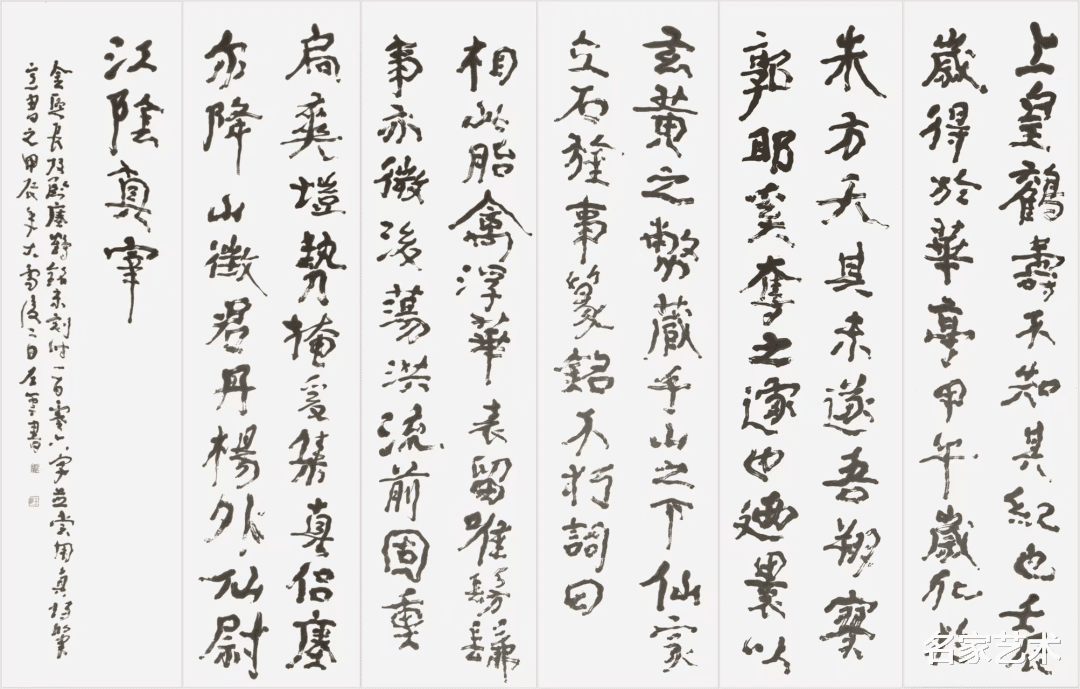 上皇鶴壽不知其紀也壬辰
歲得於華亭甲午歲化於
朱方天其未遂吾翔寥
郭耶奚奪之遽也迺裹以
玄黄之幣藏乎山之下仙家
立石旌事篆銘不朽詞曰
相此胎禽浮華表留唯髣髴
事亦微後蕩洪流前固重
扃爽塏勢掩爰集真侣瘞
尔降山徵君丹楊外仙尉
江陰真宰
鶴銘未刻一百零六字並
意書之甲辰年大雪後二日左書
名家艺术